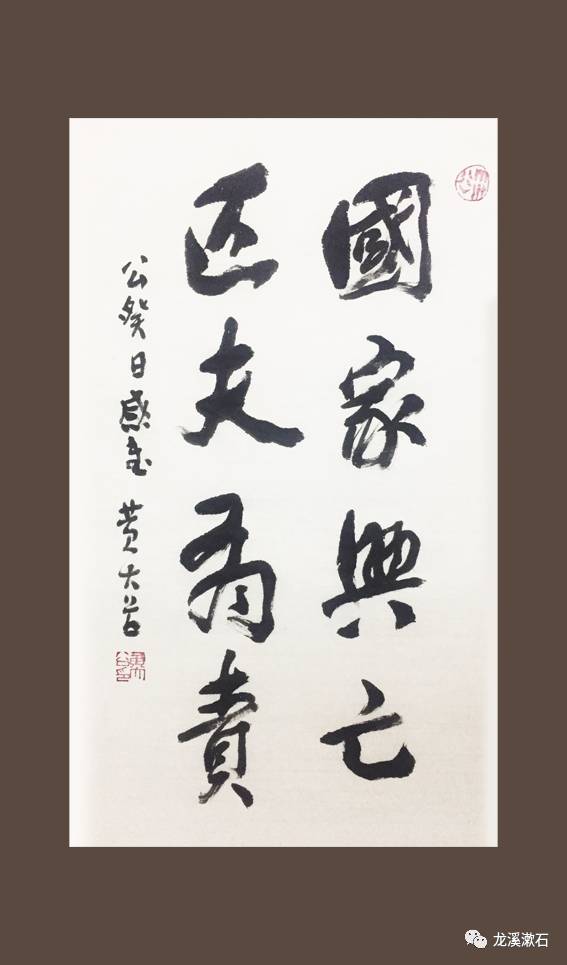 國家興亡
匹夫有責
公祭日感書 黄大谷
龙溪漱石